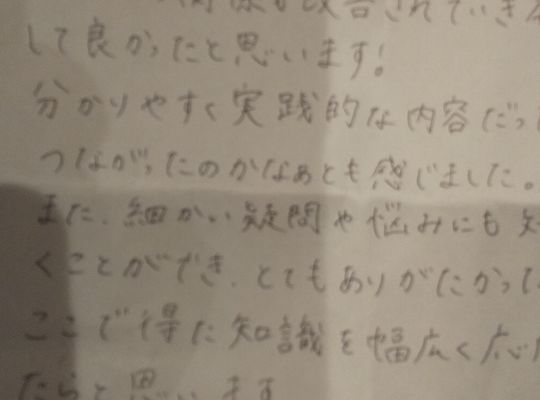 が改善されていき
して良かったと思います!
分かりやすく実践的な内容だっ
つながったのかなぁとも感じました。
また、細かい疑問や悩みにも
くことができ、とてもありがたかった
ここで得た知識を幅広く応
たらと思います